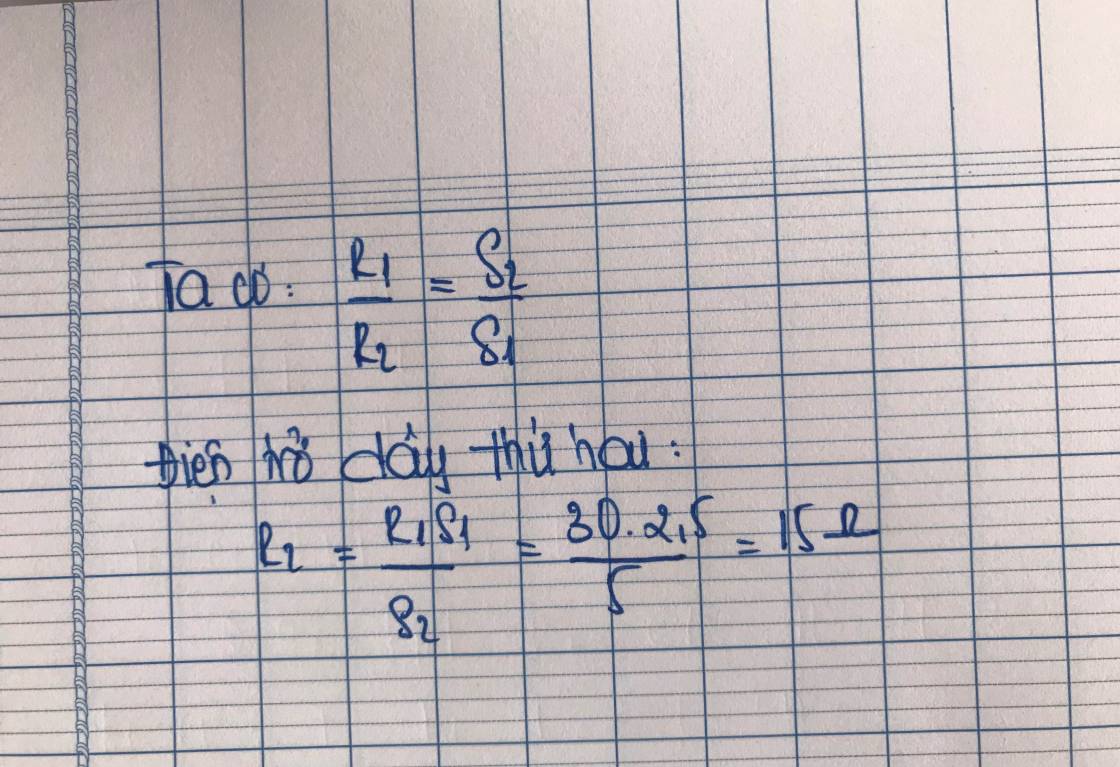 Ta có: R1/R2 = S2/S1
Điện trở dây thứ hai:
R2 = R1S1/S2 = 30.2,5/5 = 15 Ω